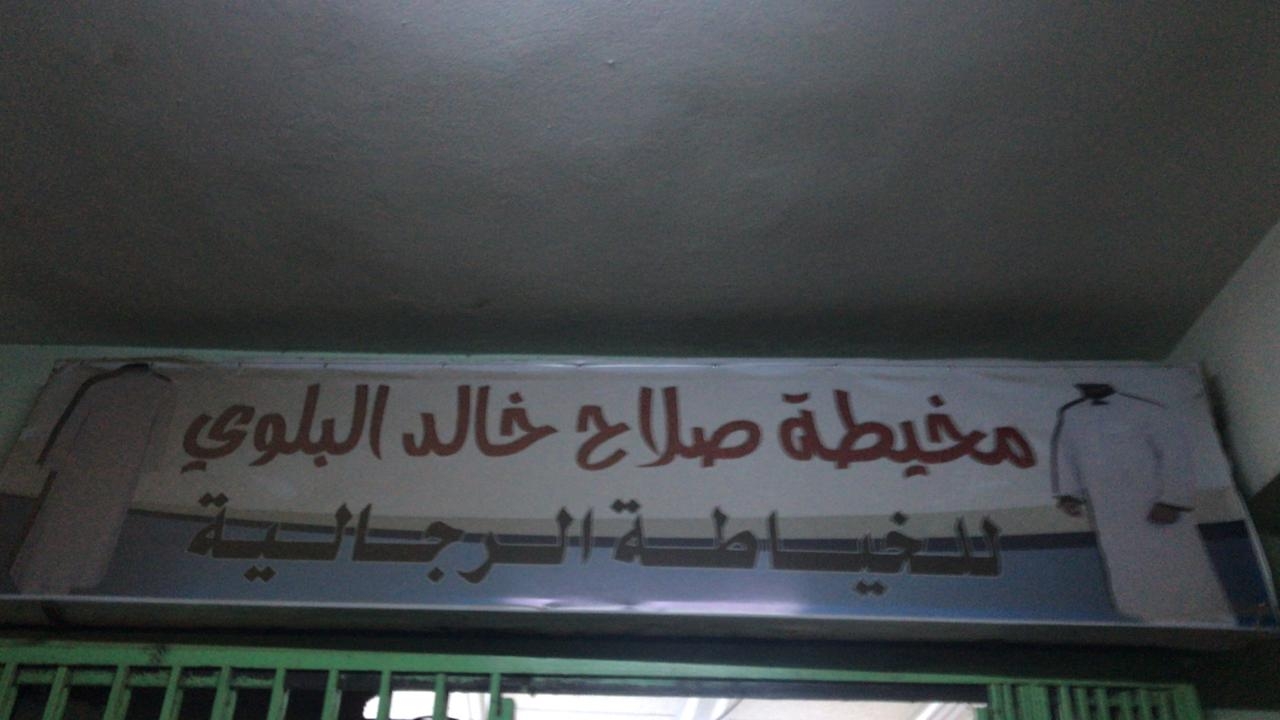 مخيطة صلاح خالد البلوي
للخياطة الرجالية